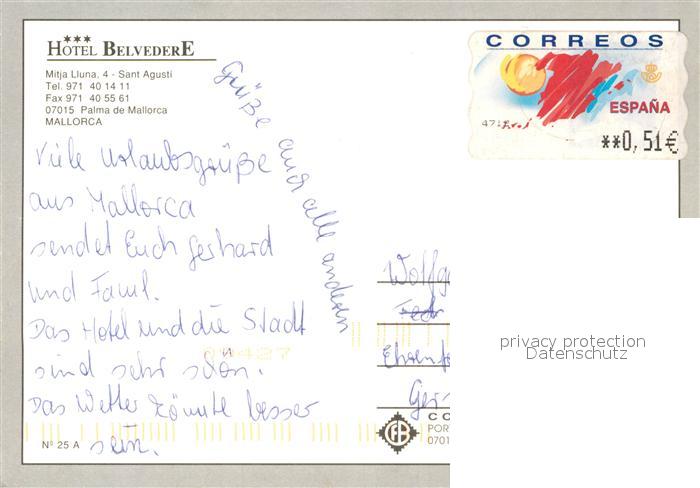 ★★★
HOTEL BELVEDERE
Mitja Lluna, 4 - Sant Agustí
Tel. 971 40 14 11
Fax 971 40 55 61
07015 Palma de Mallorca
MALLORCA
CORREOS
ESPAÑA
**0,51€
Viele Urlaubsgrüße
aus Mallorca
sendet Euch Gerhard
und Famil.
Das Hotel und die Stadt
sind sehr schön.
Das Wetter könnte besser
sein.
Grüße auch alle anderen
Wolfg
Ehrenf
Ger
privacy protection
Datenschutz
CO
POR
0701
Nº 25 A